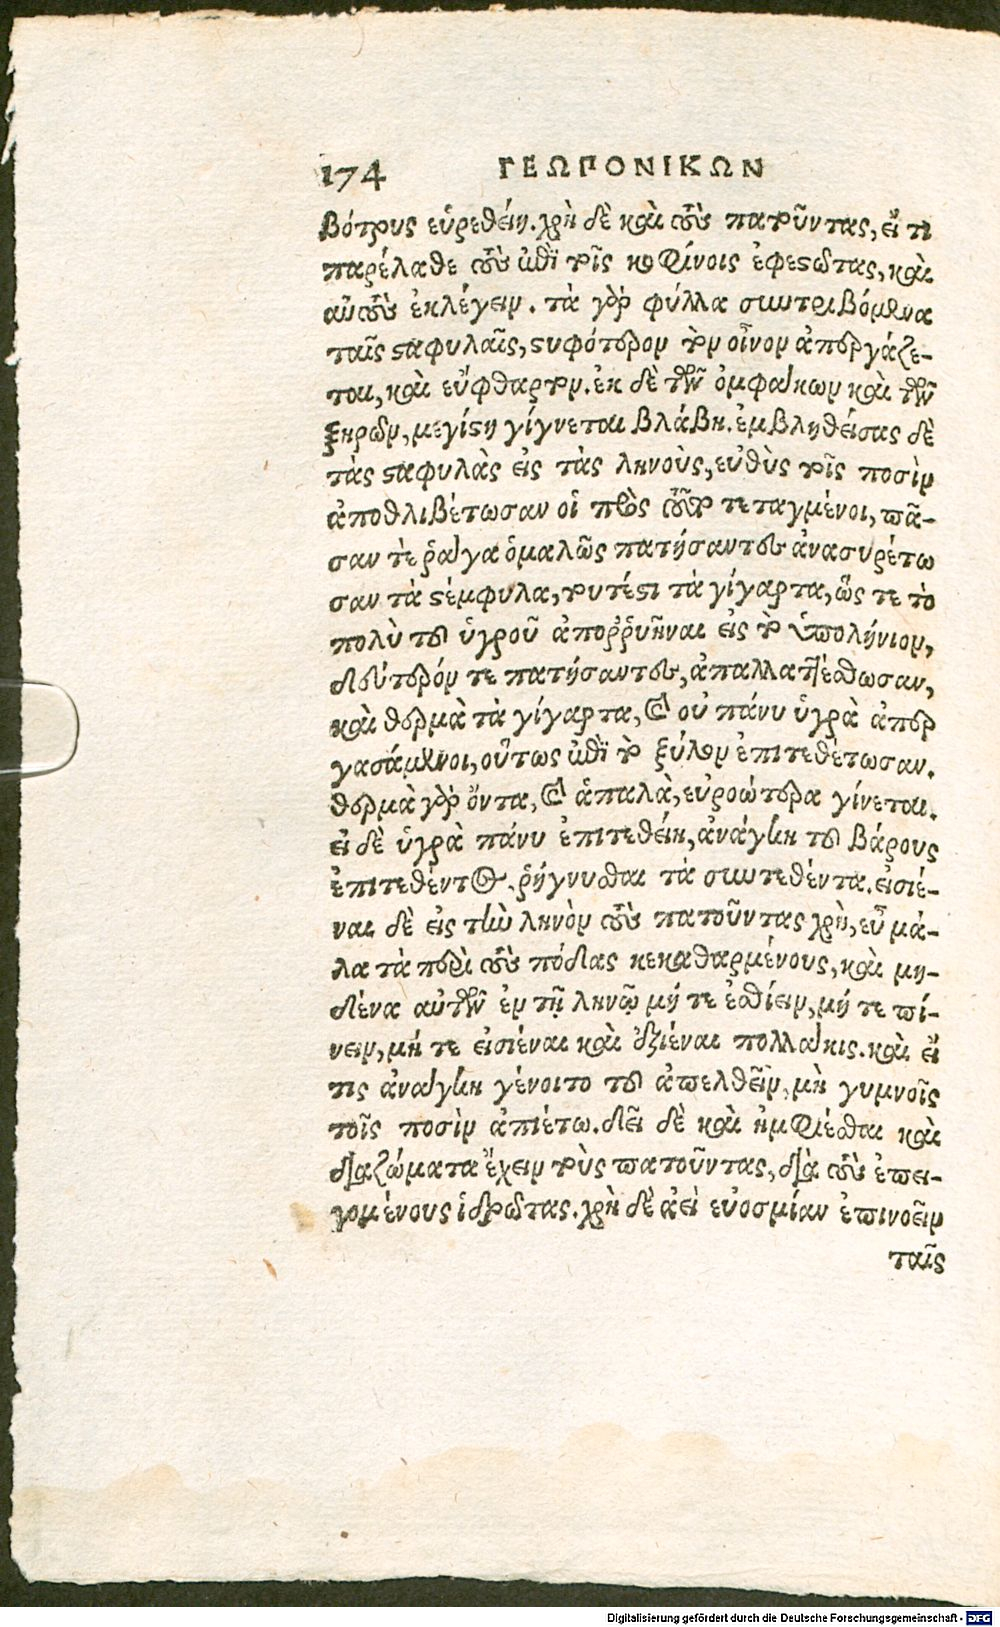 174 ΓΕΩΠΟΝΙΚΩΝ
βότρυς εὑρεθείη. χρὴ δὲ καὶ τοὺς πατοῦντας, εἴ τι
παρέλαθε τοὺς ἐπὶ τοῖς κοφίνοις ἐφεστῶτας, καὶ
αὐτοὺς ἐκλέγειν. τὰ γὰρ φύλλα συντριβόμενα
ταῖς σαφυλαῖς, στυφότερον τὸν οἶνον ἀπεργάζε-
ται, καὶ εὔφθαρτον. ἐκ δὲ τῶν ὀμφάκων καὶ τῶν
ξηρῶν, μεγίστη γίγνεται βλάβη. ἐμβληθείσας δὲ
τὰς σταφυλὰς εἰς τὰς ληνοὺς, εὐθὺς τοῖς ποσὶν
ἀποθλιβέτωσαν οἱ πρὸς τοῦτο τεταγμένοι, πᾶ-
σαν τὲ ῥάγα ὁμαλῶς πατήσαντες ἀνασυρέτω
σαν τὰ στέμφυλα, τουτέστι τὰ γίγαρτα, ὥς τε τὸ
πολὺ τοῦ ὑγροῦ ἀποῤῥυῆναι εἰς τὸ ὑπολήνιον,
δεύτερόν τε πατήσαντες, ἀπαλλαττέσθωσαν,
καὶ θερμὰ τὰ γίγαρτα, καὶ οὐ πάνυ ὑγρὰ ἀπερ
γασάμενοι, οὕτως ἐπὶ τὸ ξύλον ἐπιτεθέτωσαν.
θερμὰ γὰρ ὄντα, καὶ ἁπαλὰ, εὐροώτερα γίνεται.
εἰ δὲ ὑγρὰ πάνυ ἐπιτεθείη, ἀνάγκη τοῦ βάρους
ἐπιτεθέντος, ῥήγνυσθαι τὰ συντεθέντα. εἰσιέ-
ναι δὲ εἰς τὴν ληνὸν τοὺς πατοῦντας χρὴ, εὖ μά-
λα τὰ περὶ τοὺς πόδας κεκαθαρμένους, καὶ μη-
δένα αὐτῶν ἐν τῇ ληνῷ μή τε ἐσθίειν, μή τε πί-
νειν, μή τε εἰσιέναι καὶ ἐξιέναι πολλάκις. καὶ εἴ
τις ἀνάγκη γένοιτο τοῦ ἀπελθεῖν, μὴ γυμνοῖς
τοῖς ποσὶν ἀπιέτω. δεῖ δὲ καὶ ἠμφιέσθαι καὶ
διαζώματα ἔχειν τοὺς πατοῦντας, διὰ τοὺς ἐπει-
γομένους ἱδρῶτας. χρὴ δὲ ἀεὶ εὐοσμίαν ἐπινοεῖν
ταῖς
Digitalisierung gefördert durch die Deutsche Forschungsgemeinschaft - DFG